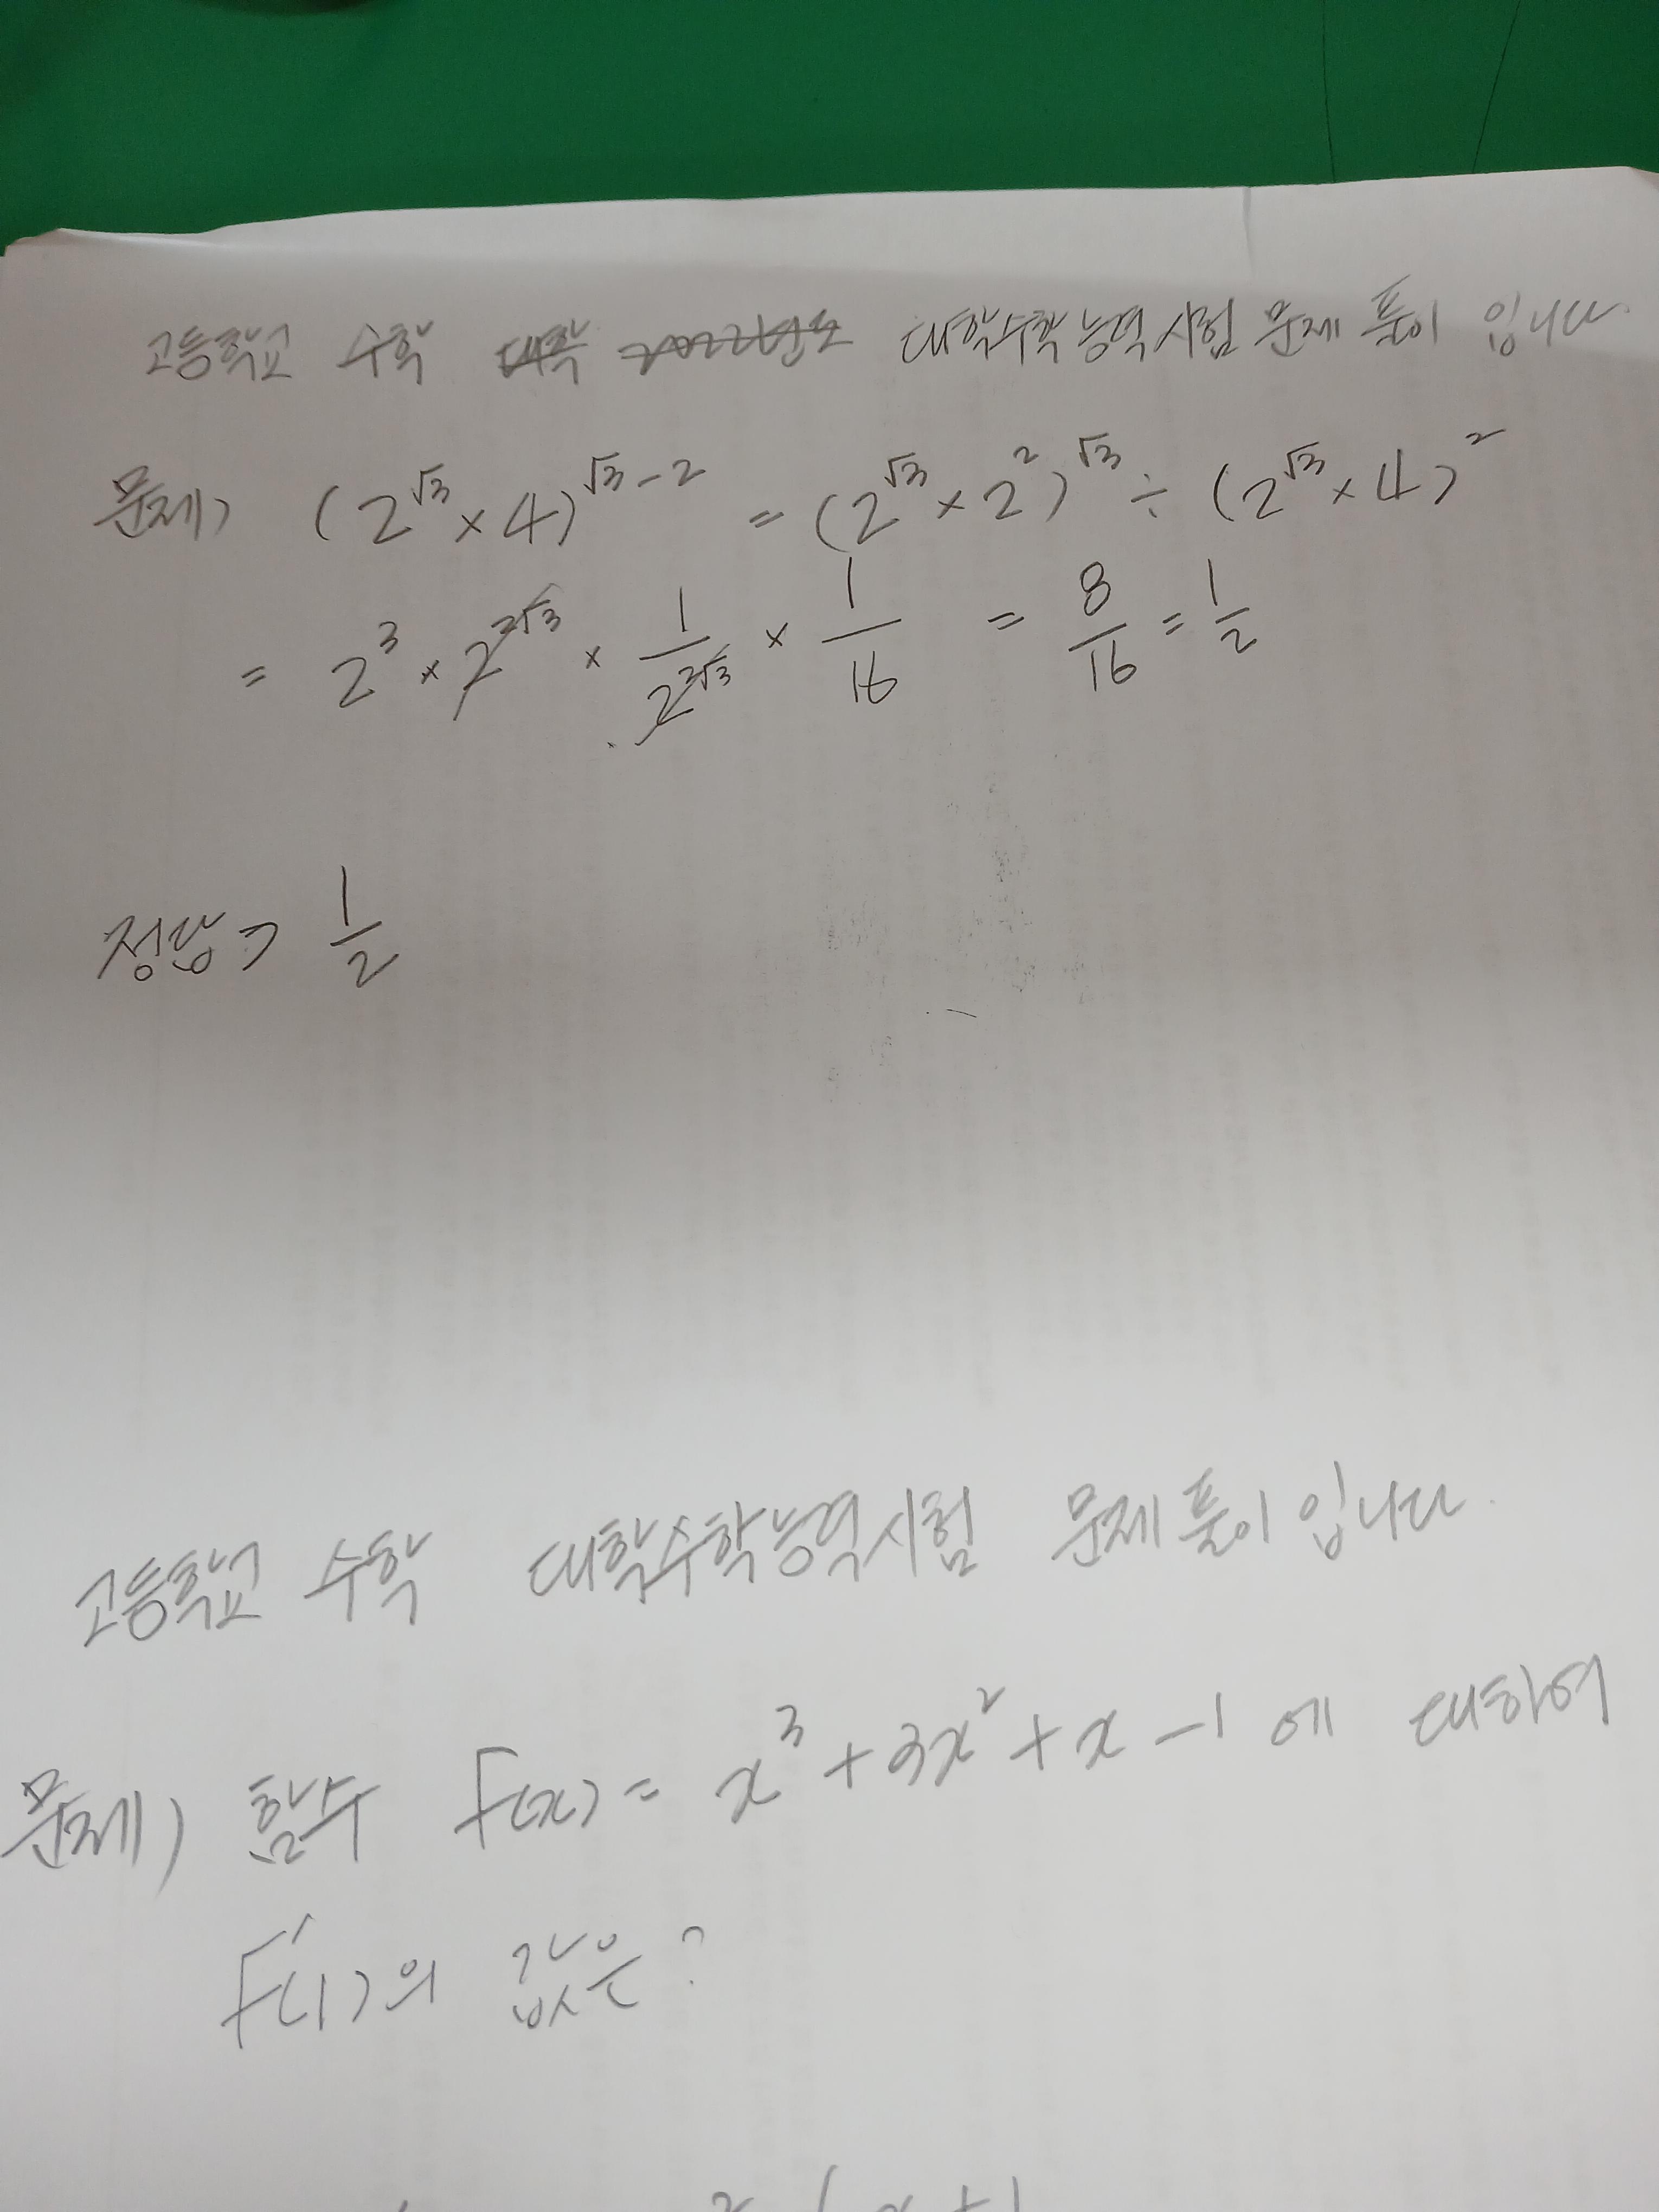 고등학교 수학 대학 2022년도 대학수학능력시험 문제 풀이 입니다.
문제) (2^√3 × 4)^√3-2 = (2^√3 × 2²)^√3 ÷ (2^√3 × 4)²
= 2³ × 2^2√3 × 1/2^2√3 × 1/16 = 8/16 = 1/2
정답) 1/2
고등학교 수학 대학수학능력시험 문제 풀이 입니다.
문제) 함수 F(x) = x³ + 3x² + x - 1 에 대하여
F'(1)의 값은?